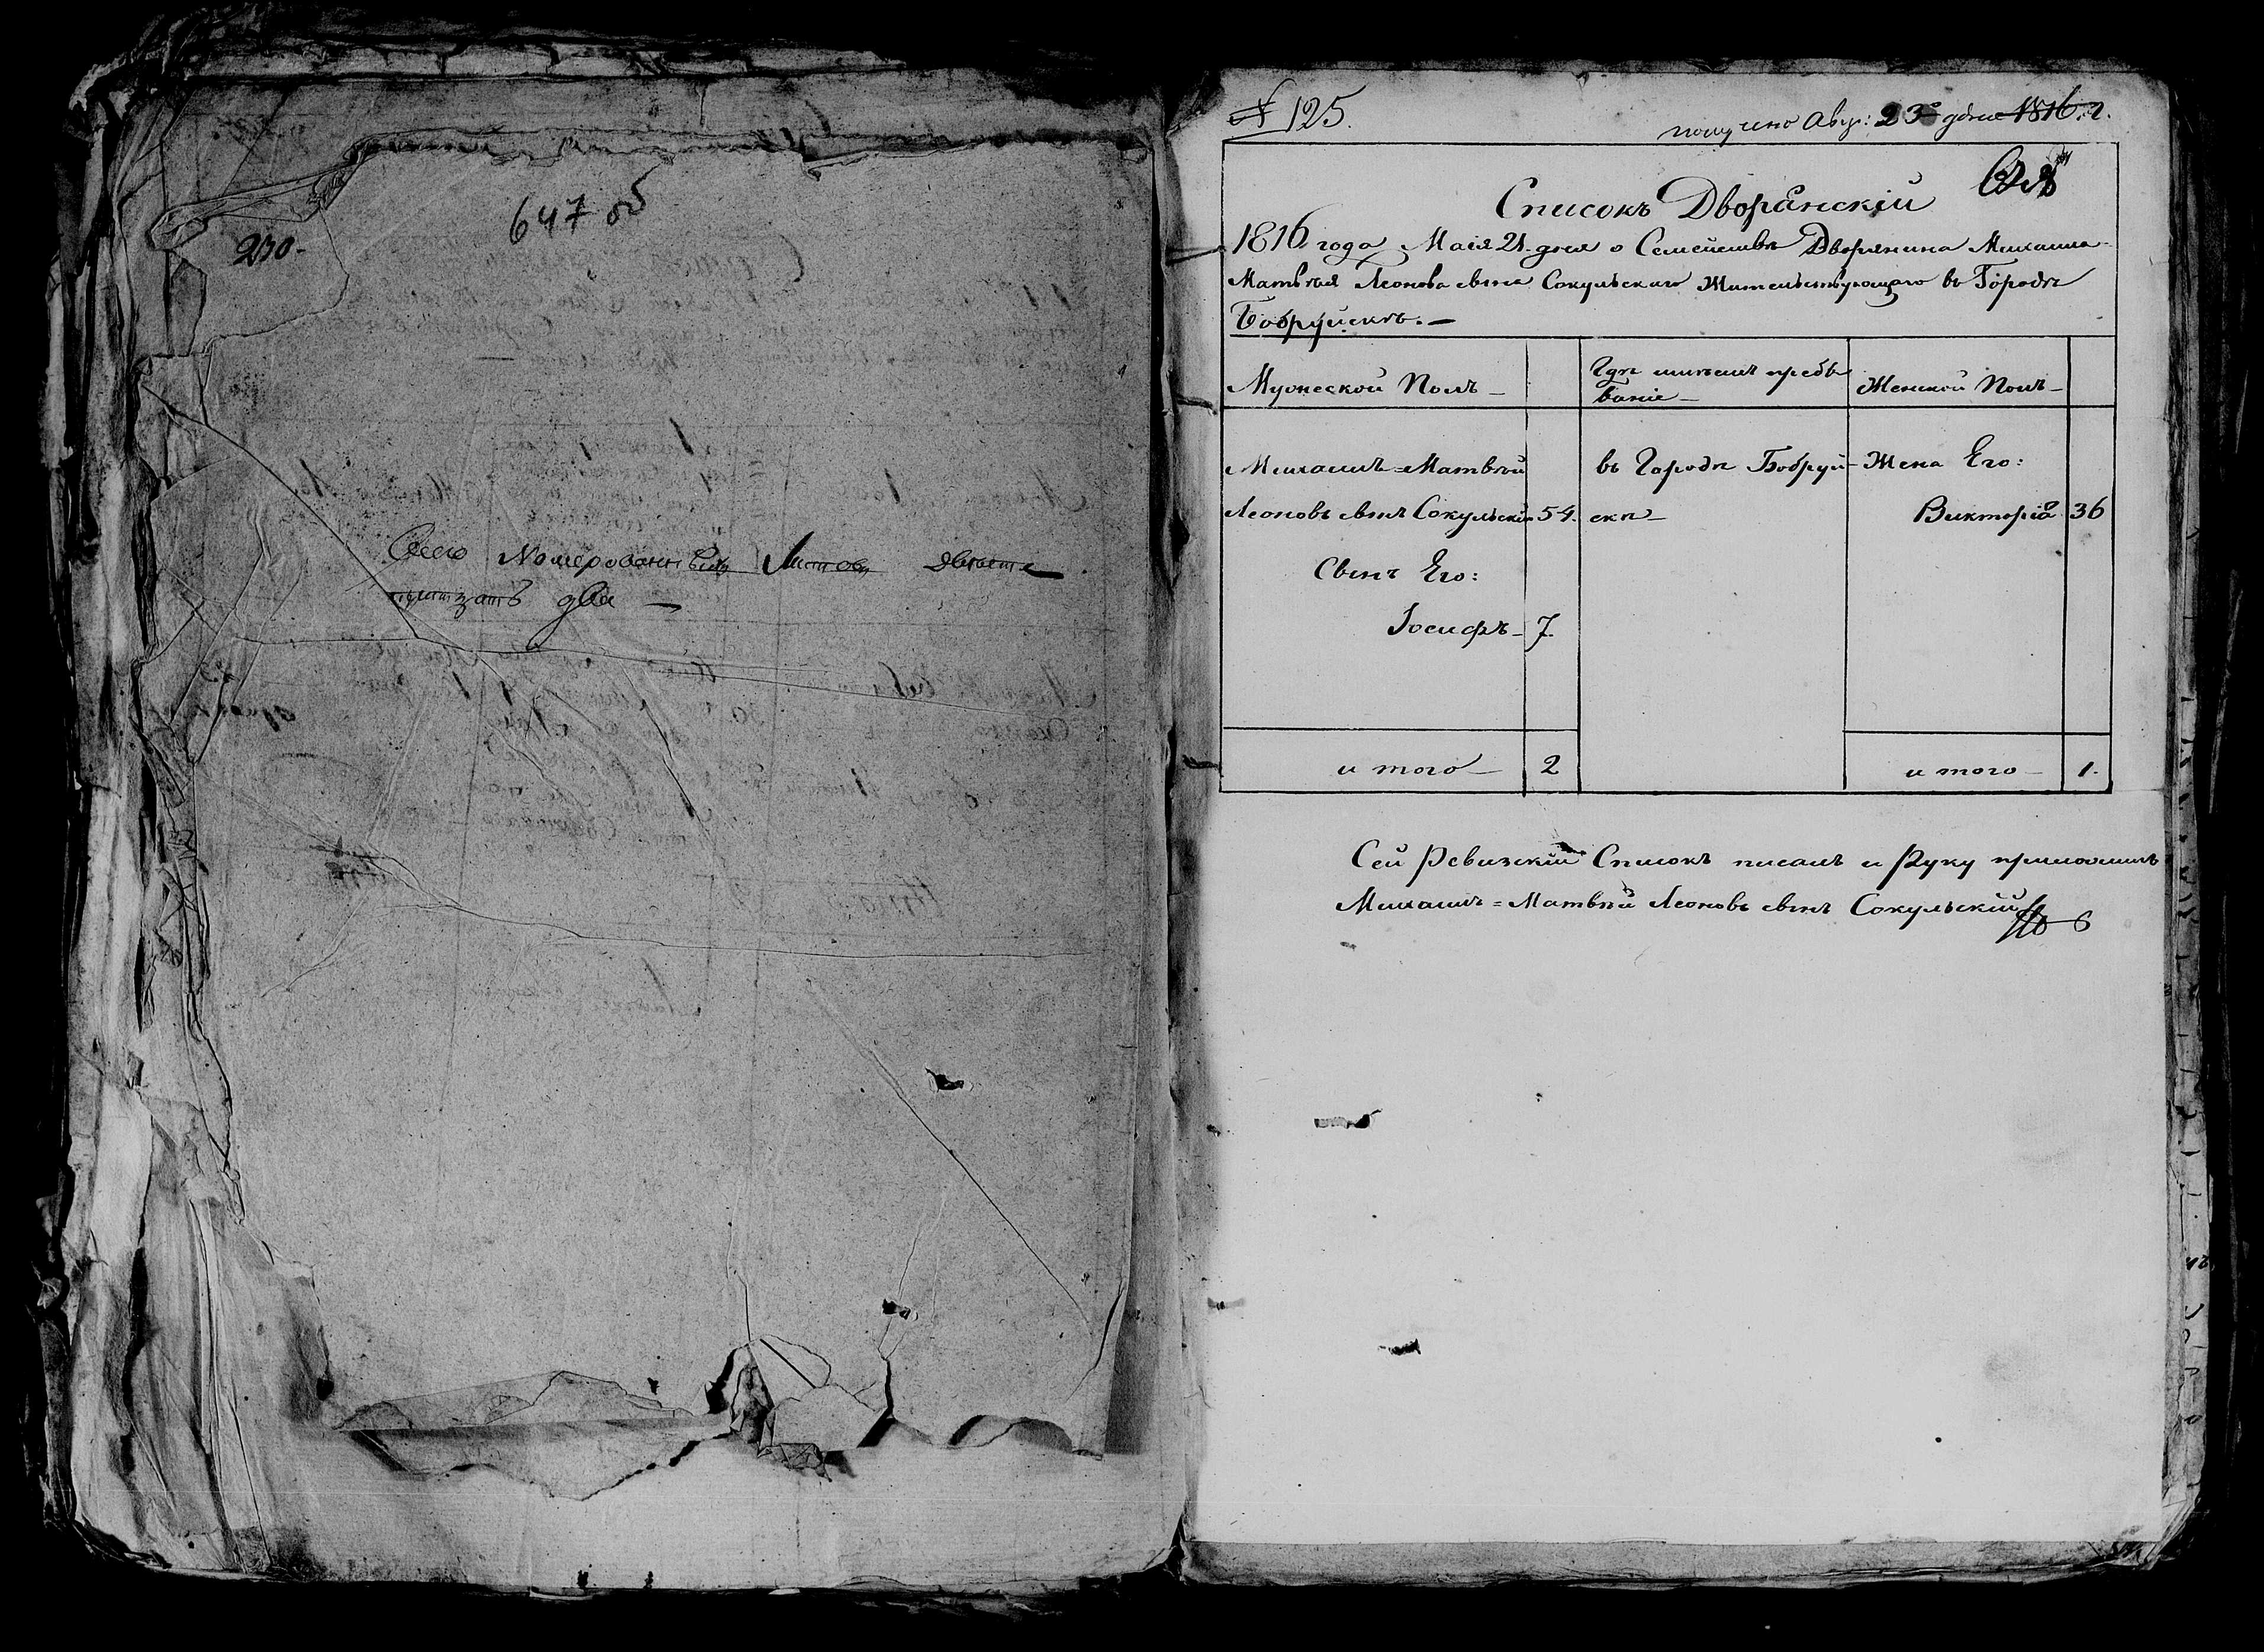 647 об
230-
Сего Номерованныхъ Листовъ двѣсти
тритцать два —
№ 125.
получено Авгу: 23го дня 1816. г.
Списокъ Дворянскій
1816 года Маія 21 дня о Семействѣ Дворянина Михаила-
Матвѣя Леонова сына Сокульскаго Жительствующаго въ Городѣ
Бобруйскѣ. —
Мужеской Полъ —
Гдѣ имѣетъ пребы
ваніе —
Женской Полъ —
Михаилъ=Матвѣй
въ Городѣ Бобруй-
Жена Его:
Леоновъ сынъ Сокульскій 54.
скѣ —
Викторія 36
Сынъ Его:
Іосифъ — 7.
и того — 2
и того — 1.
Сей Ревизскій Списокъ писалъ и Руку приложилъ
Михаилъ=Матвѣй Леоновъ сынъ Сокульскій